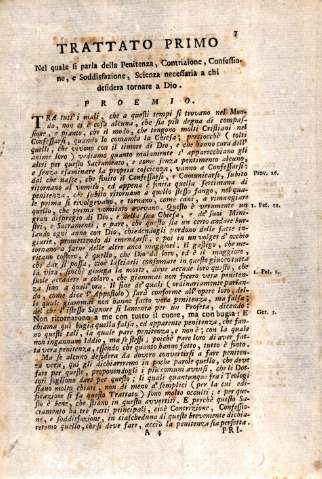 3
TRATTATO PRIMO
Nel quale si parla della Penitenza, Contrizione, Confessio-
ne, e Soddisfazione, Scienza necessaria a chi
desidera tornare a Dio.
PROEMIO.
TRA tutt' i mali, che a questi tempi si trovano nel Mon-
do, non ci è cosa alcuna, che sia più degna di compas-
sione, e pianto, che il modo, che tengono molti Cristiani nel
Confessarsi, quando lo comanda la Chiesa; perciocchè (tolti
quelli, che vivono con il timore di Dio, e che hanno cura dell'
anime loro) vediamo quanto malamente s' apparecchiano gli
altri per questo Sacramento, e come senza pentimento alcuno,
e senza esaminare la propria coscienza, vanno a Confessarsi:
dal che nasce, che finito il Confessarsi, e Comunicarsi, subito
ritornano al vomito, ed appena è finita quella settimana di
penitenza, che subito ritornano a quello stesso fango, nel quale
in prima si rivolgevano, e tornano, come cani, a rimangiare
quello, che prima vomitato avevano. Questo è veramente un
gran disprezzo di Dio, e della sua Chiesa, e de' suoi Mini-
stri, e Sacramenti, e pare, che questi sia un certo andare bur-
lando ogni anno con Dio, chiedendogli perdono delle fatte in-
giurie, promettendo di emendarsi, e poi in un volger d'occhio
tornano a farne delle altre anco maggiori. Il gastigo, che me-
ritano costoro, è quello, che Dio dà loro, ed è il maggiore,
che dar si possa, cioè lasciarli continuare in questo giuoco tutta
la vita, finchè giunga la morte, dove accade loro questo, che
suole accadere a coloro, che giammai non fecero vera peniten-
za, il fine de' quali (ordinariamente parlan-
do, come dice l' Appostolo) sarà conforme all' opere loro, da'
quali giammai non hanno fatto vera penitenza, ma falsa;
del che l' istesso Signore si lamenta per un Profeta, dicendo:
Non ritornarono a me con tutto il cuore, ma con bugia: E
chiama qui bugia quella falsa, ed apparente penitenza, che fan-
no questi tali, la quale pare penitenza, e non è; con la quale
non ingannano Iddio, ma se stessi; poichè pare loro di aver fat-
ta vera penitenza, essendo che quanto hanno fatto, tutto è finto.
Ma se alcuno desidera da dovero convertirsi a fare peniten-
za vera, qui gli dichiareremo in poche parole quello, che deve
fare per questo, proponendogli i più comuni avvisi, che li Dot-
tori sogliono dare per questo; li quali quantunque fra i Teologi
siano molto chiari, non di meno a' semplici (per la cui edi-
ficazione si fa questo Trattato) sono molto occulti; e per que-
sto è bene, che siano in questo avvertiti. E perchè questo Sa-
cramento ha tre parti principali, cioè Contrizione, Confessio-
ne, e soddisfazione, in ciascheduna di queste brevemente dichia-
reremo quello, che si deve fare, acciò la penitenza sia perfetta.
A 4 PRI-
Prov. 26.
2. Pet. 22.